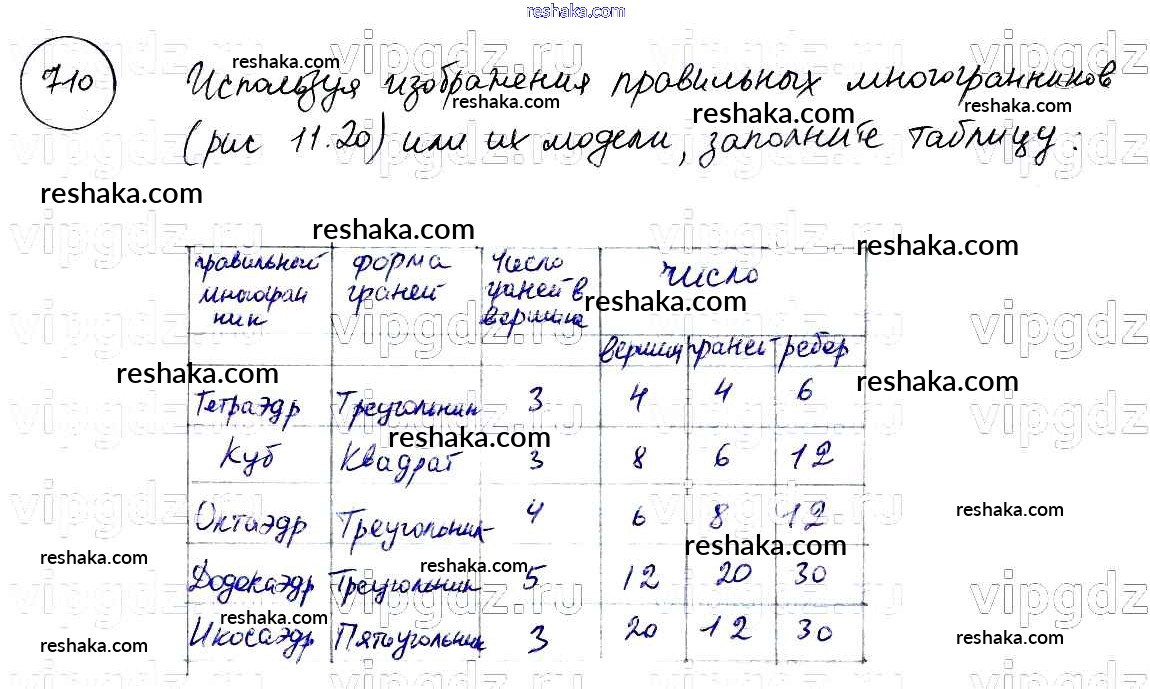 reshaka.com
710 Используя изображения правильных многогранников
reshaka.com reshaka.com reshaka.com
(рис 11.20) или их модели, заполните таблицу.
reshaka.com reshaka.com
reshaka.com
reshaka.com
reshaka.com
vipgdz.ru vipgdz.ru vipgdz
правильный многогран ник | форма граней | число граней в вершине | число
reshaka.com
вершин | граней | ребер
reshaka.com reshaka.com
Тетраэдр | Треугольник | 3 | 4 | 4 | 6
reshaka.com
Куб | Квадрат | 3 | 8 | 6 | 12
vipgdz.ru vipgdz.ru vipgdz
Октаэдр | Треугольник- | 4 | 6 | 8 | 12
reshaka.com
reshaka.com reshaka.com reshaka.com
Додекаэдр | Треугольник | 5 | 12 | 20 | 30
vipgdz.ru vipgdz.ru vipgdz
reshaka.com
Икосаэдр | Пятиугольник | 3 | 20 | 12 | 30
reshaka.com reshaka.com